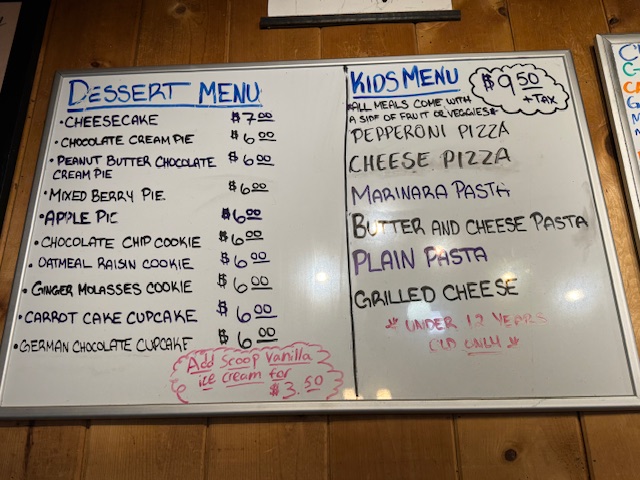 DESSERT MENU
• CHEESECAKE $7.00
• CHOCOLATE CREAM PIE $6.00
• PEANUT BUTTER CHOCOLATE $6.00
CREAM PIE
• MIXED BERRY PIE $6.00
• APPLE PIE $6.00
• CHOCOLATE CHIP COOKIE $6.00
• OATMEAL RAISIN COOKIE $6.00
• GINGER MOLASSES COOKIE $6.00
• CARROT CAKE CUPCAKE $6.00
• GERMAN CHOCOLATE CUPCAKE $6.00
Add Scoop Vanilla
ice cream for
$3.50
KIDS MENU
$9.50
+ TAX
*ALL MEALS COME WITH
A SIDE OF FRUIT OR VEGGIES*
PEPPERONI PIZZA
CHEESE PIZZA
MARINARA PASTA
BUTTER AND CHEESE PASTA
PLAIN PASTA
GRILLED CHEESE
* UNDER 12 YEARS
OLD ONLY *